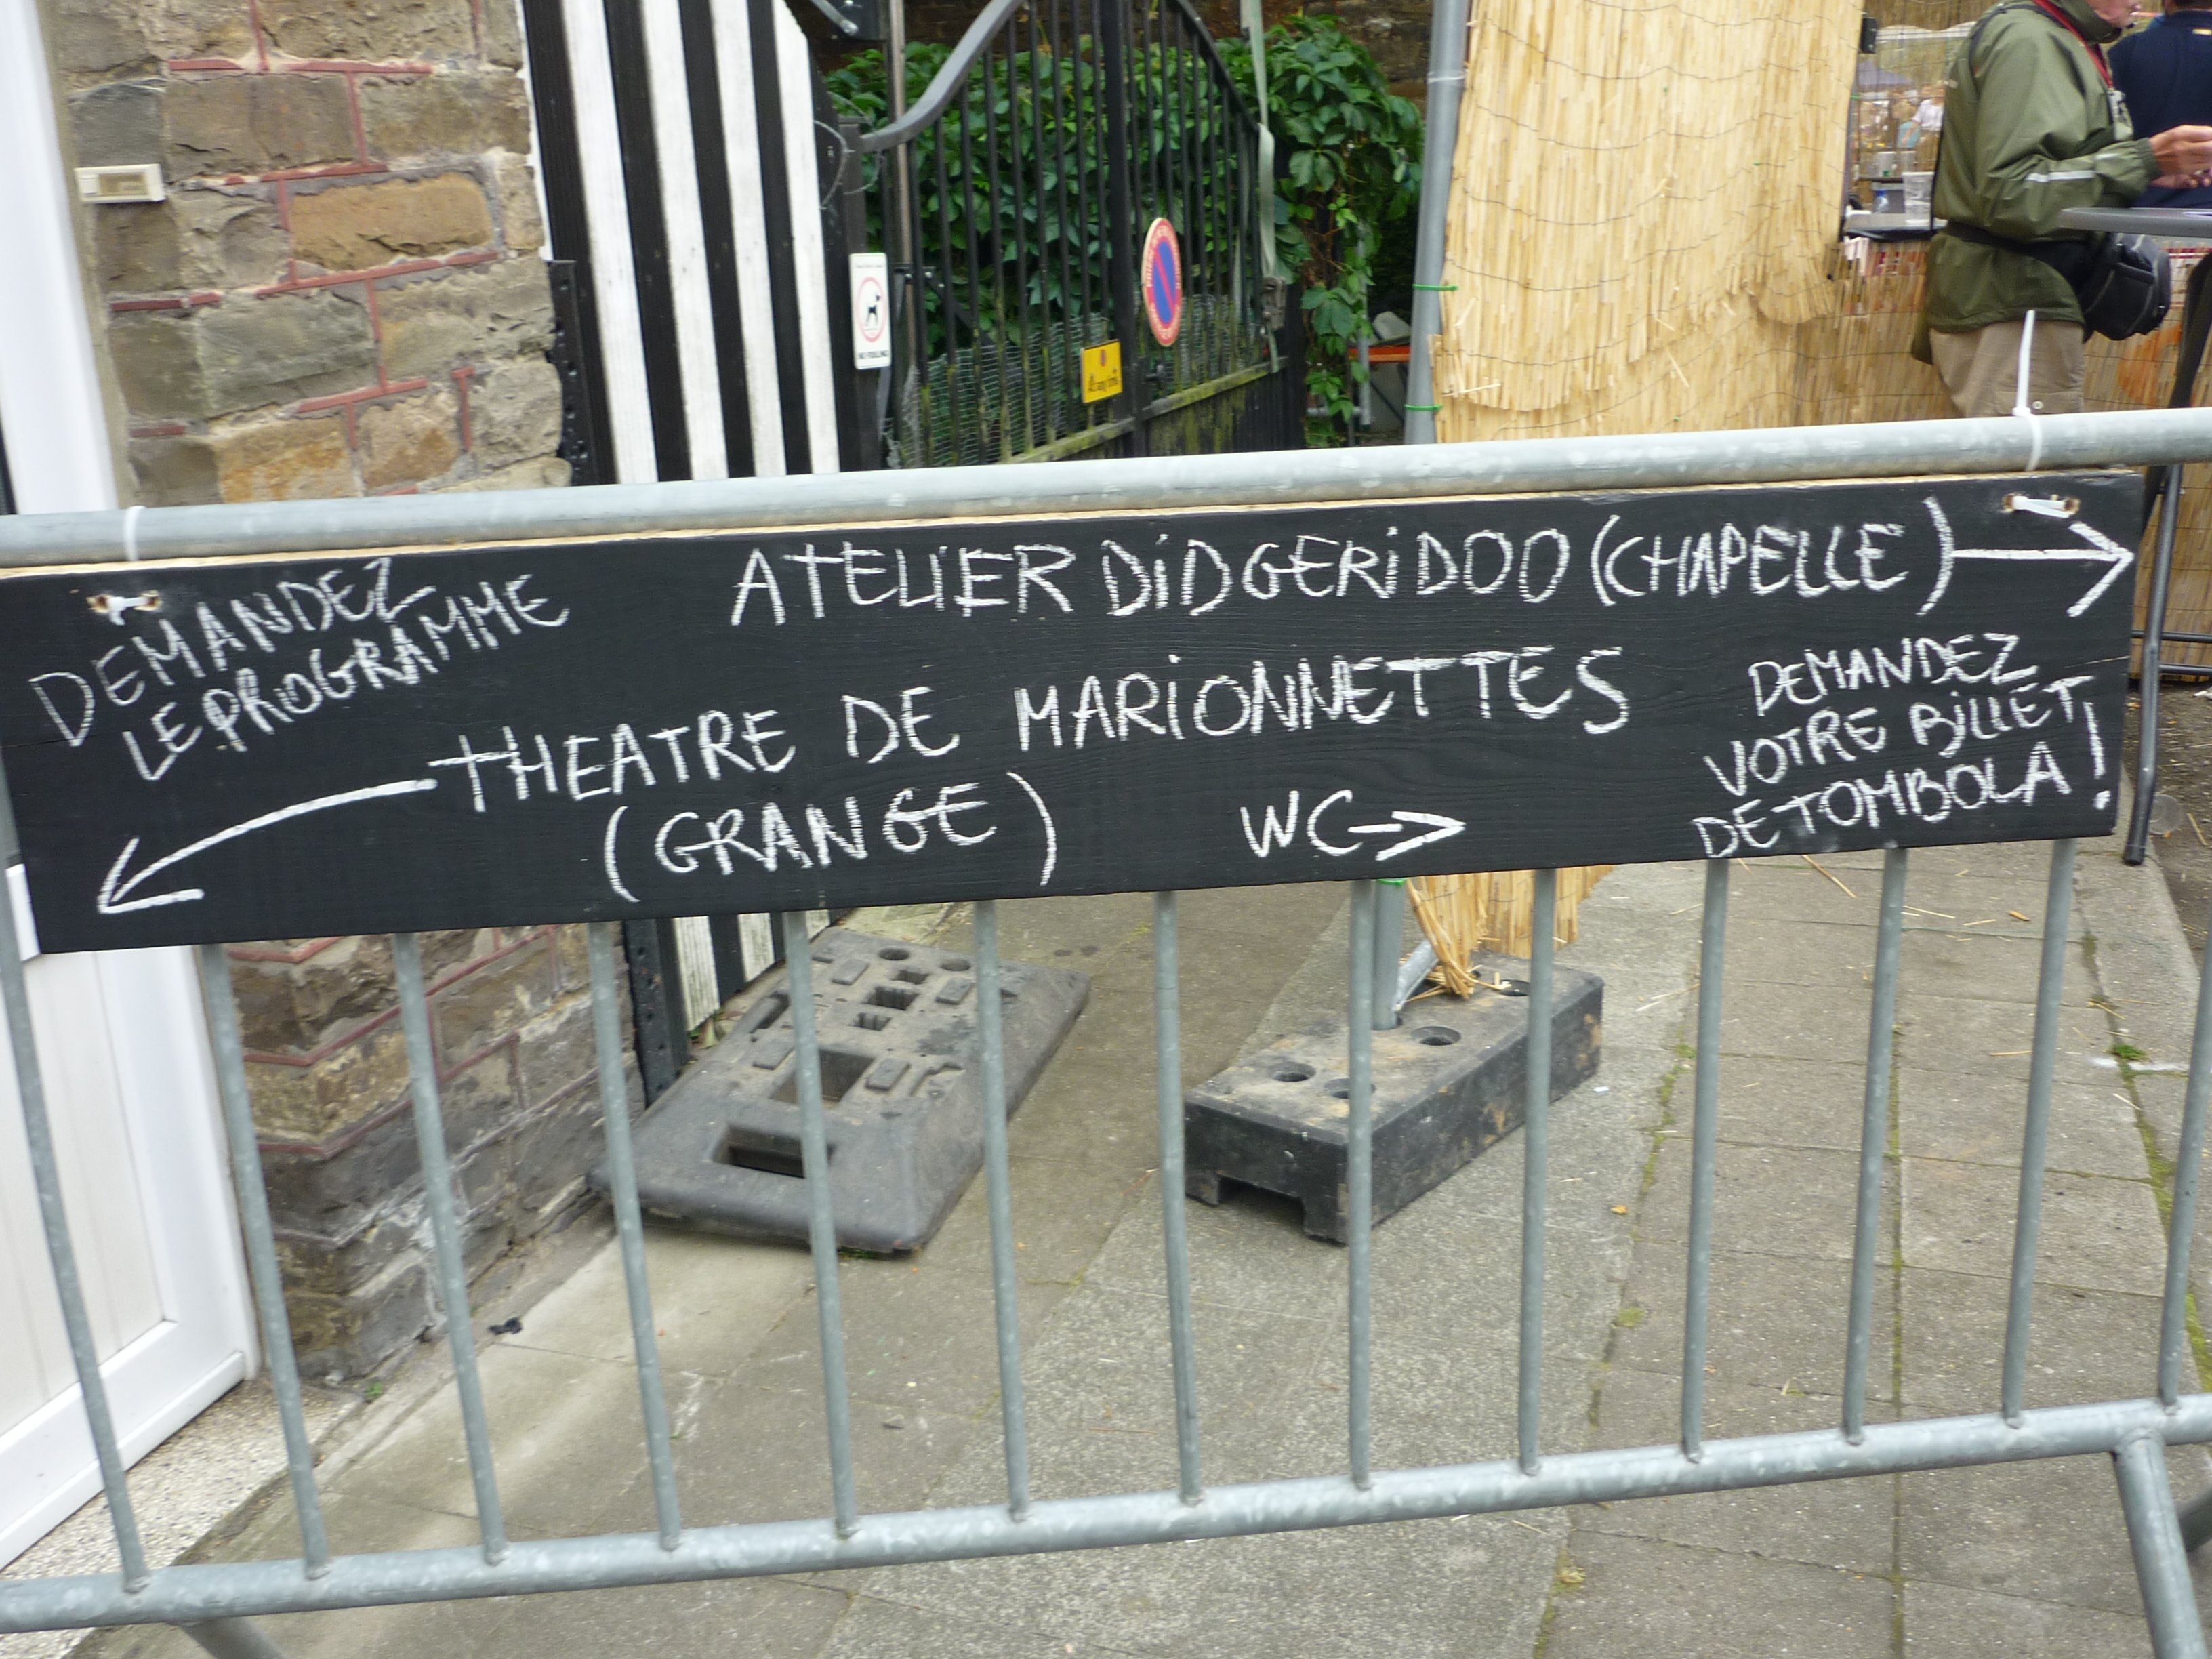 DEMANDEZ
LE PROGRAMME
ATELIER DIDGERIDOO (CHAPELLE)
THEATRE DE MARIONNETTES
(GRANGE)
WC
DEMANDEZ
VOTRE BILLET
DE TOMBOLA!
NO FOULING